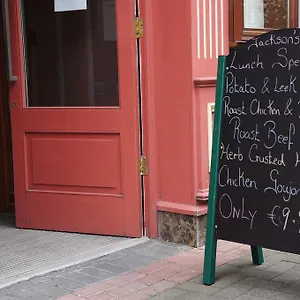 Jackson's
Lunch Spe
Potato & Leek
Roast Chicken &
Roast Beef
Herb Crusted H
Chicken Goujon
Only €9.